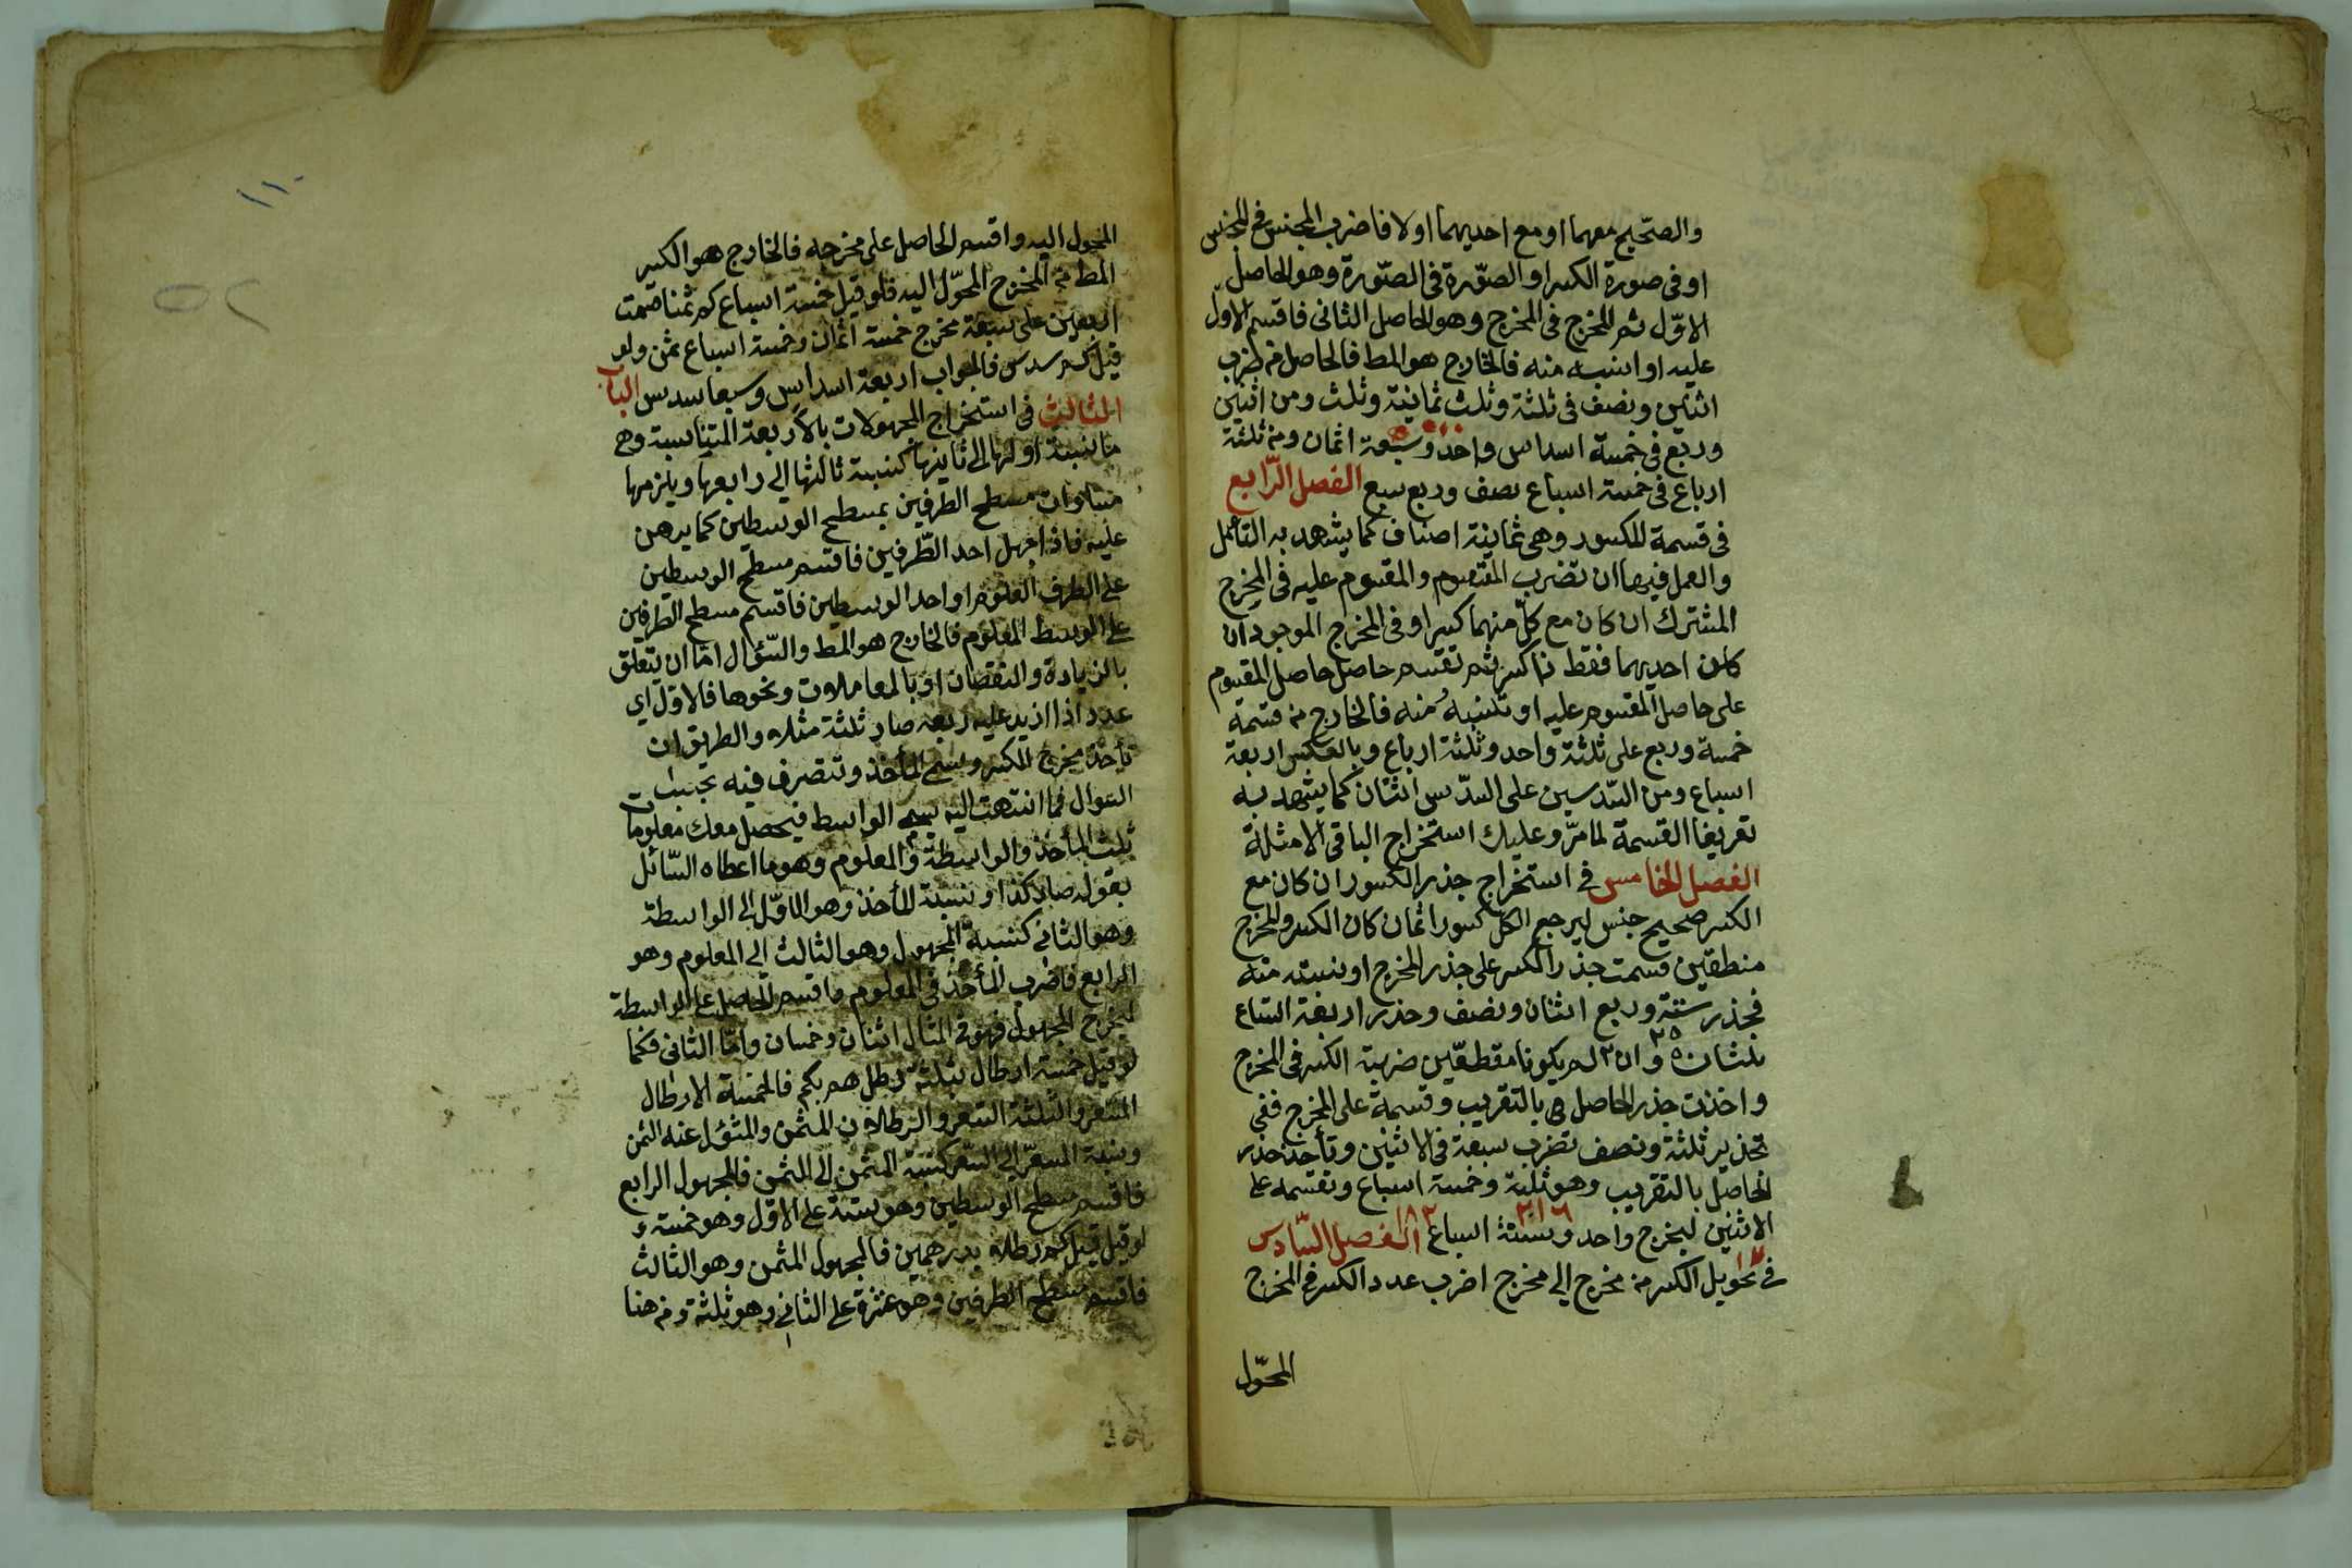 والصحيح معهما او مع احديهما اولا فاضرب المجنس في المجنس
او فى صورة الكسر او الصّورة فى الصّورة وهو الحاصل
الاوّل ثم المخرج فى المخرج وهو الحاصل الثانى فاقسم الاوّل
عليه او انسبه منه فالخارج هو المط فالحاصل من ضرب
اثنين ونصف فى ثلثة وثلث ثمانية وثلث ومن اثنين
وربع فى خمسة اسداس واحد وسبعة اثمان ومن ثلثة
ارباع فى خمسة اسباع نصف وربع سبع الفصل الرّابع
فى قسمة الكسور وهى ثمانية اصناف كما يشهد به التأمل
والعمل فيها ان تضرب المقسوم والمقسوم عليه فى المخرج
المشترك ان كان مع كلّ منهما كسر او فى المخرج الموجود ان
كان احديهما فقط ذا كسر ثم تقسم حاصل حاصل المقسوم
على حاصل المقسوم عليه او تنسبه منه فالخارج من قسمة
خمسة وربع على ثلثة واحد وثلثة ارباع وبالعكس اربعة
اسباع ومن السّدسين على السّدس اثنان كما يشهد به
تعريفا القسمة لما مرّ وعليك استخراج الباقى الامثلة
الفصل الخامس فى استخراج جذر الكسور ان كان مع
الكسر صحيح جنس ليرجع الكل كسورا ثمان كان الكسر والمخرج
منطقين قسمت جذر الكسر على جذر المخرج او نسبته منه
فجذر ستة وربع اثنان ونصف وجذر اربعة اتساع
ثلثان وان لم يكونا منطقين ضربت الكسر فى المخرج
واخذت جذر الحاصل بالتقريب وقسمة على المخرج ففى
تجذير ثلثة ونصف تضرب سبعة فى الاثنين وتأخذ جذر
الحاصل بالتقريب وهو ثلثة وخمسة اسباع وتقسمه على
الاثنين ليخرج واحد وستة اسباع الفصل السّادس
فى تحويل الكسر من مخرج الى مخرج اضرب عدد الكسر فى المخرج
المحوّل
١١٠
٥٢
المحول اليه واقسم الحاصل على مخرجه فالخارج هو الكسر
المط من المخرج المحوّل اليه فلو قيل خمسة اسباع كم ثمنا قسمت
اربعين على سبعة مخرج خمسة اثمان وخمسة اسباع ثمن ولو
قيل كم سدس فالجواب اربعة اسداس وسبعا سدس الباب
الثالث فى استخراج المجهولات بالاربعة المتناسبة وهى
ما نسبة اولها الى ثانيها كنسبة ثالثها الى رابعها ويلزمها
مساوات مسطح الطرفين بمسطح الوسطين كما برهن
عليه فاذا جهل احد الطّرفين فاقسم مسطح الوسطين
على الطرف المعلوم او احد الوسطين فاقسم مسطح الطرفين
على الوسط المعلوم فالخارج هو المط والسّؤال امّا ان يتعلق
بالزيادة والنقصان او بالمعاملات ونحوها فالاوّل اى
عدد اذا ازيد عليه ربعه صار ثلثة مثلا والطريق ان
تأخذ مخرج الكسر وتسمى المأخذ وتتصرف فيه بحسب
السوال فما انتهت اليه يسمى الواسط فيحصل معك معلومات
ثلث المأخذ والواسطة والمعلوم وهو ما اعطاه السّائل
بقوله صار كذا ونسبة المأخذ وهو الاوّل الى الواسطة
وهو الثانى كنسبة المجهول وهو الثالث الى المعلوم وهو
الرابع فاضرب المأخذ فى المعلوم واقسم الحاصل على الواسطة
ليخرج المجهول فهو فى المثال اثنان وخمسان وامّا الثانى فكما
لو قيل خمسة ارطال بثلثة رطل هم بكم فالخمسة الارطال
المسعر والثلثة السعر والرطلان المثمن والمثول عنه الثمن
ونسبة المسعّر الى السعر كنسبة المثمن الى المثمن فالمجهول الرابع
فاقسم مسطح الوسطين وهو ستة على الاوّل وهو خمسة و
لو قيل قيل كم رطلا بدرهمين فالمجهول المثمن وهو الثالث
فاقسم مسطح الطرفين وهو عشرة على الثانى وهو ثلثة ومن هنا